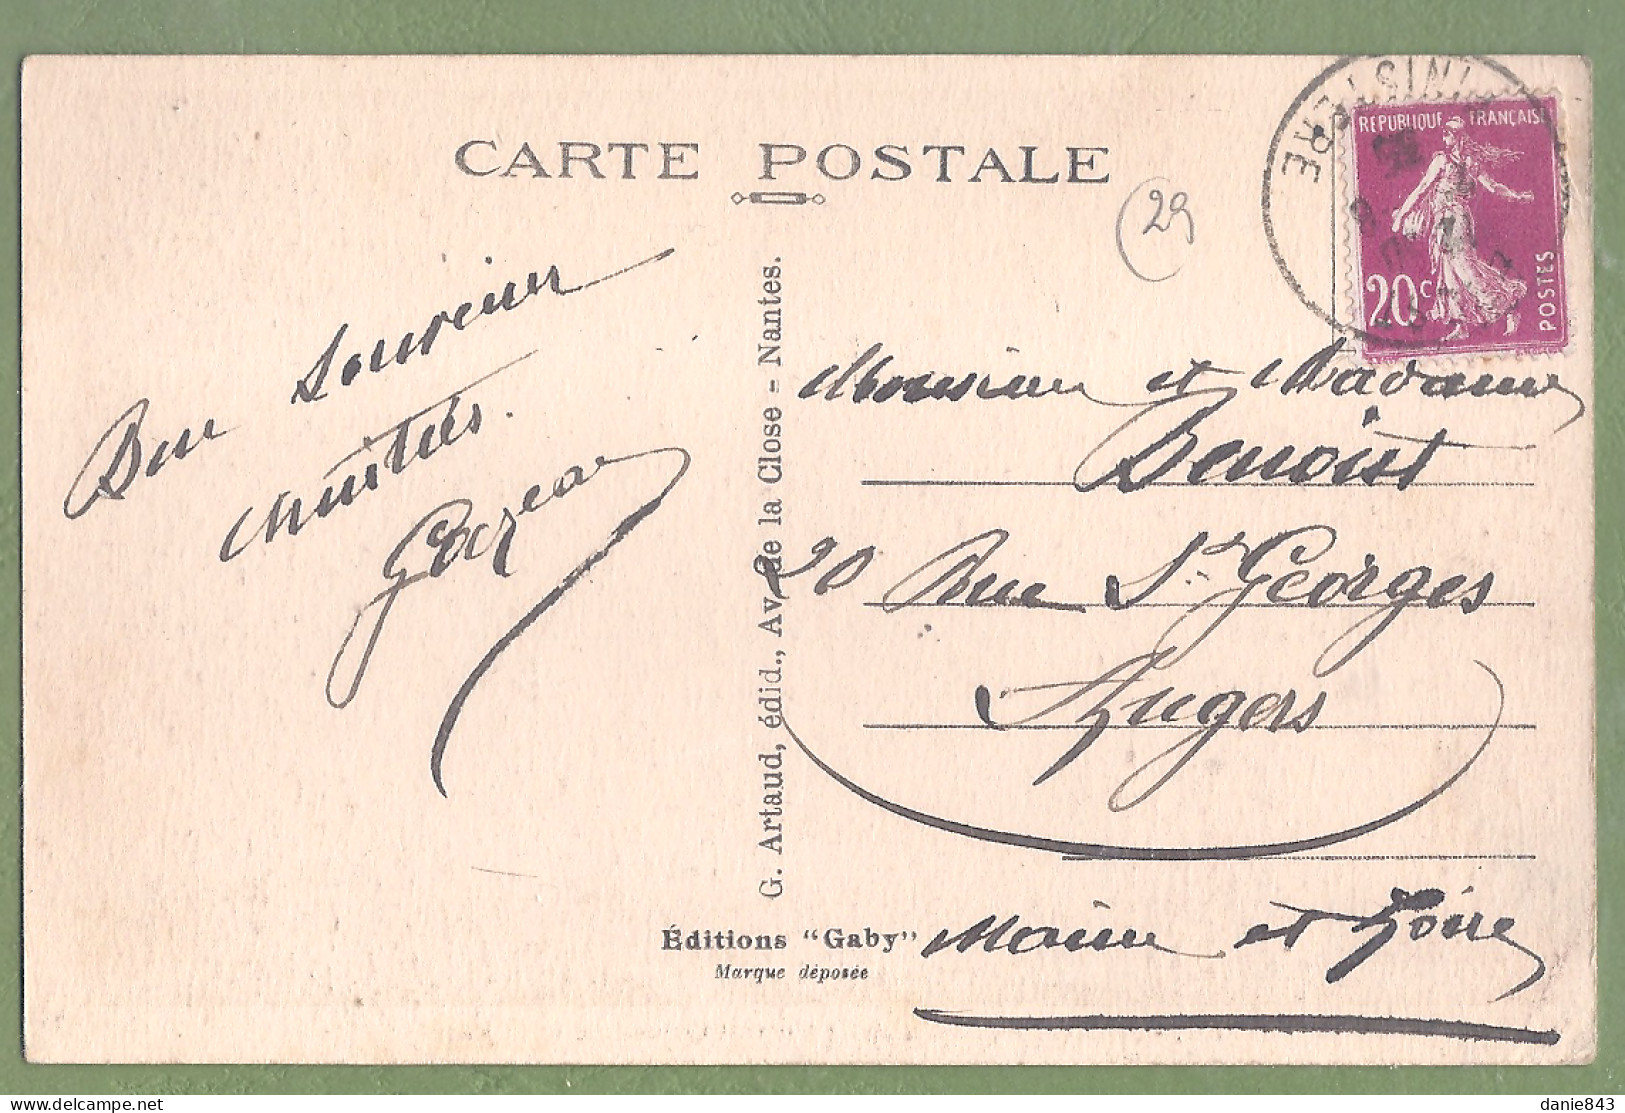 CARTE POSTALE
29
FINISTERE
REPUBLIQUE FRANÇAISE
20c
POSTES
Bon Souvenir
Amitiés.
G. Artaud, édid., Av. de la Close - Nantes.
Monsieur et Madame
Benoist
20 Rue St Georges
Angers
Maine et Loire
Éditions "Gaby"
Marque déposée
danie843